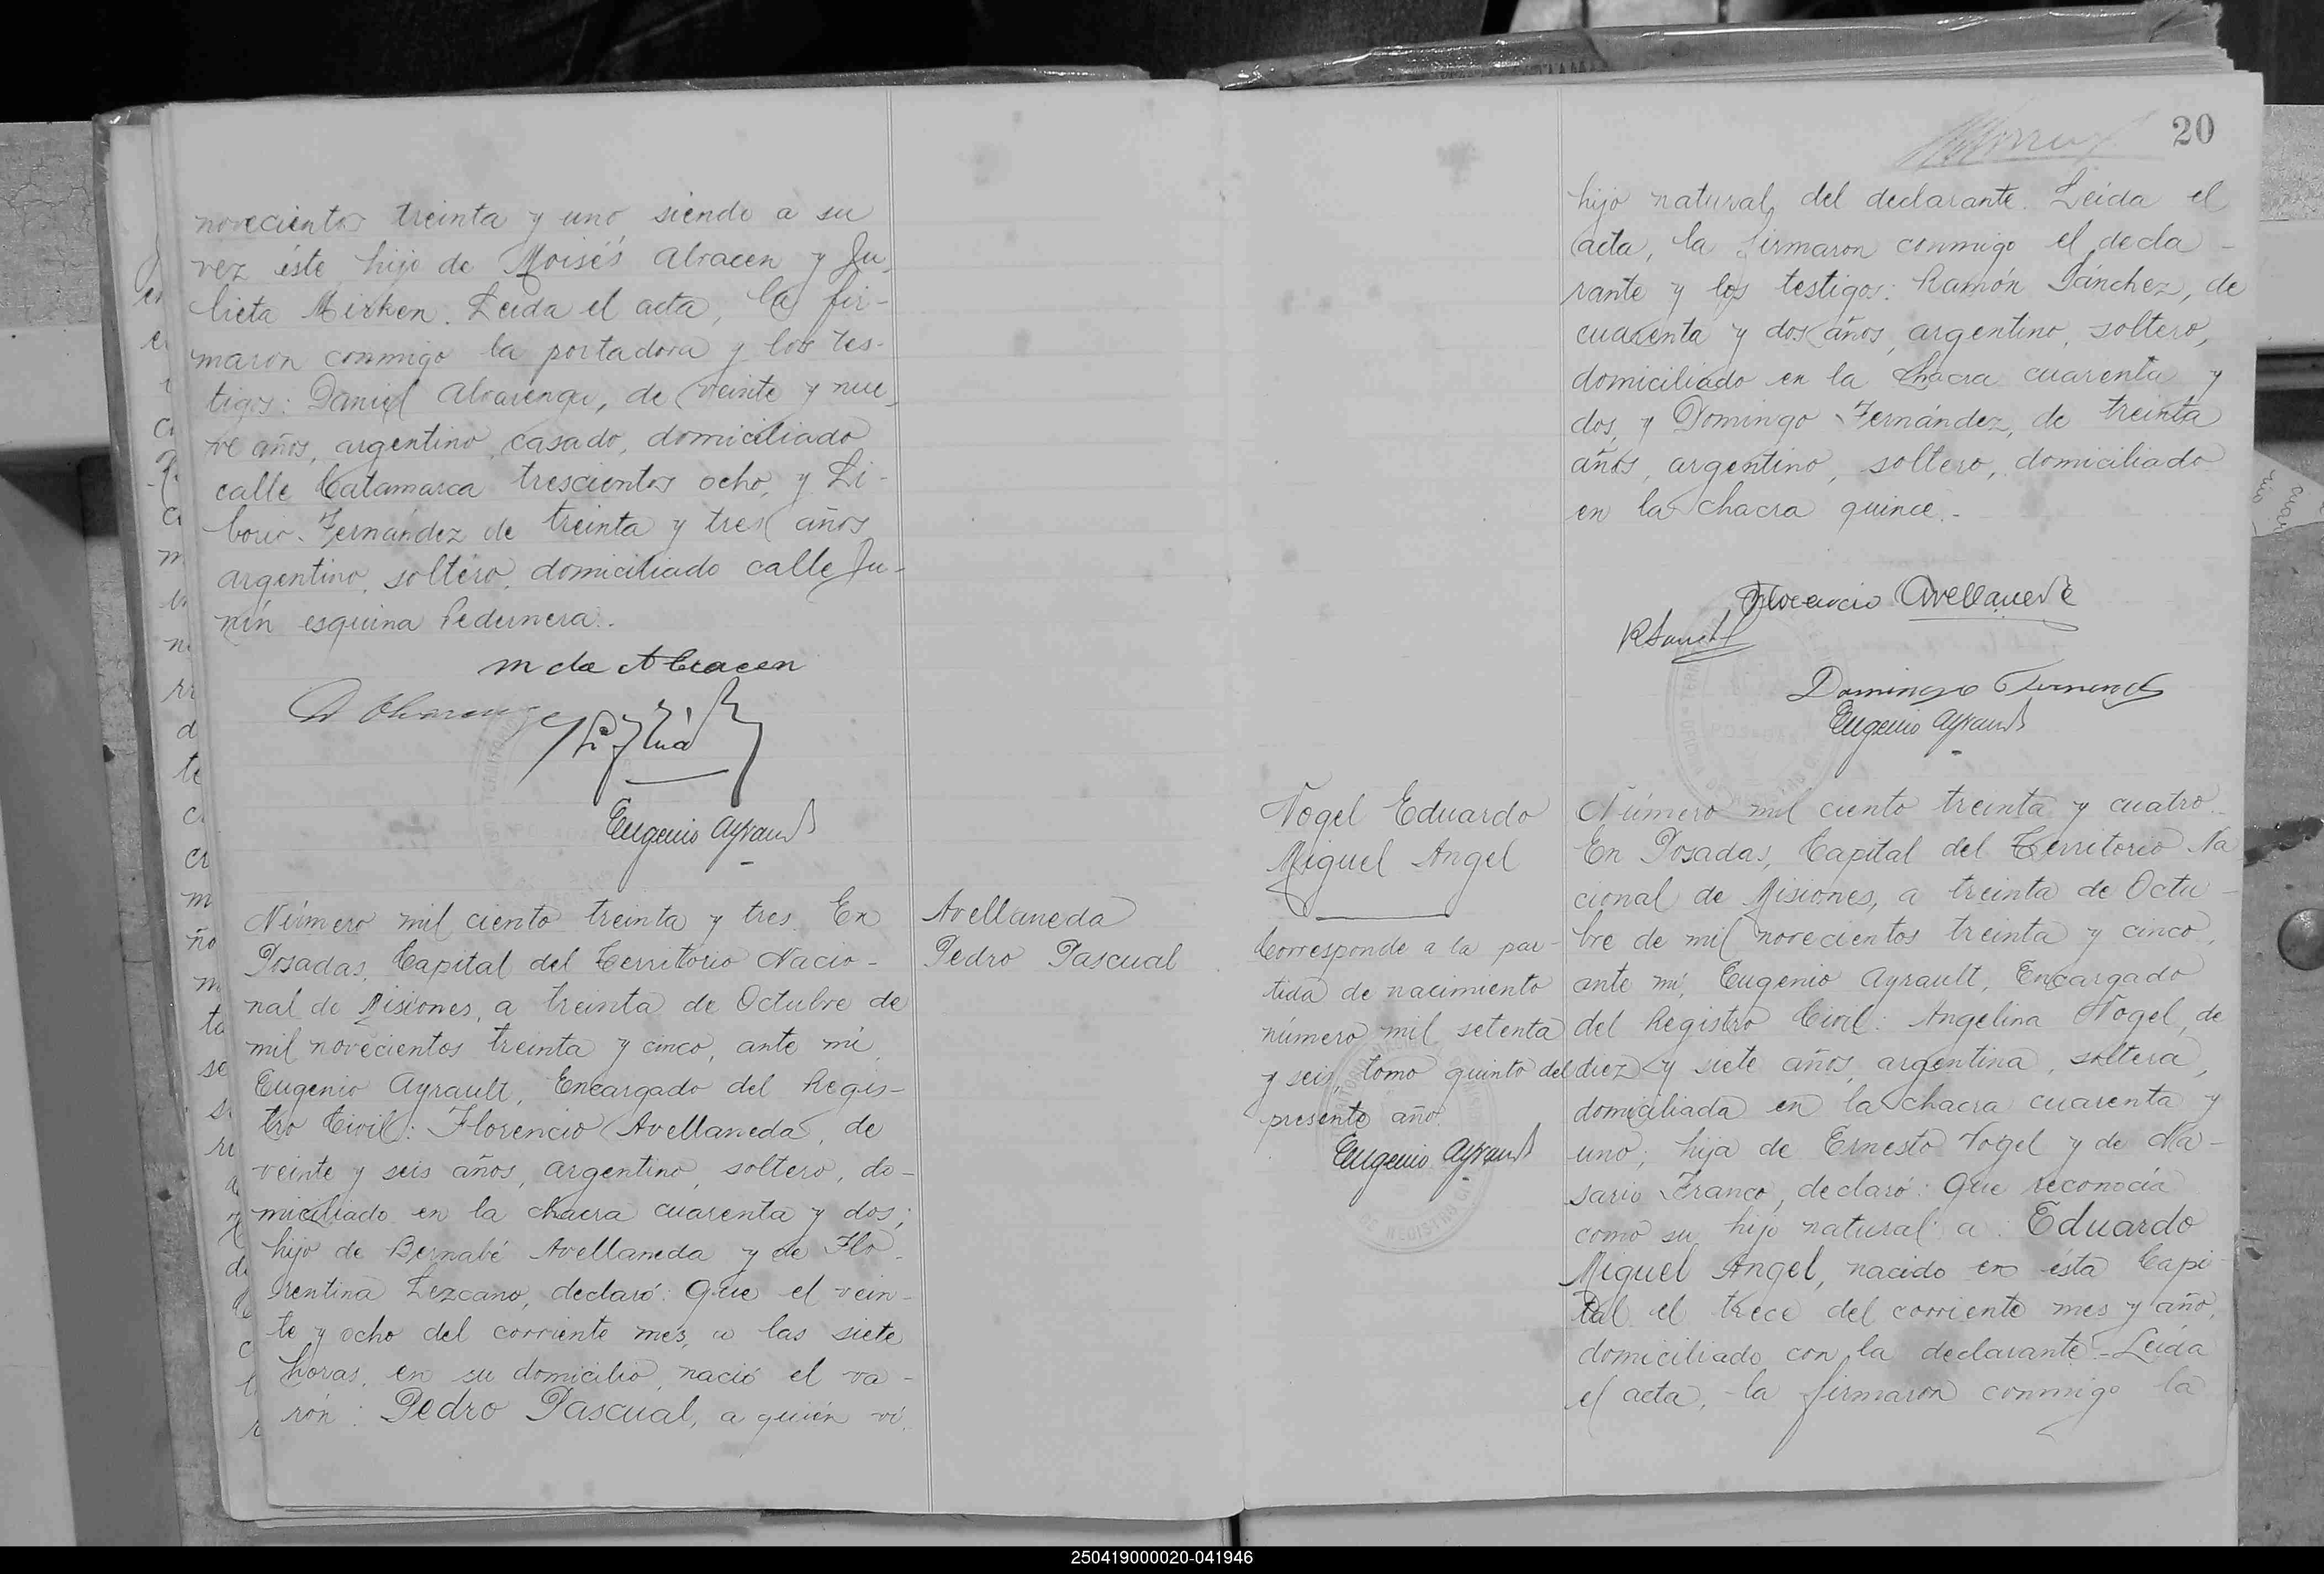 novecientos treinta y uno, siendo a su
vez éste hijo de Moisés Abracen y Ju-
lieta Mirken. Leida el acta, la fir-
maron conmigo la portadora y los tes-
tigos: Daniel Alvarenga, de veinte y nue-
ve años, argentino, casado, domiciliado
calle Catamarca trescientos ocho, y Li-
borio Fernández de treinta y tres años
argentino, soltero, domiciliado calle Ju-
nín esquina Pedernera.-
M de Abracen
Eugenio Ayrault
Número mil ciento treinta y tres. En
Posadas, Capital del Territorio Nacio-
nal de Misiones, a treinta de Octubre de
mil novecientos treinta y cinco, ante mí,
Eugenio Ayrault, Encargado del Regis-
tro Civil: Florencio Avellaneda, de
veinte y seis años, argentino, soltero, do-
miciliado en la chacra cuarenta y dos;
hijo de Bernabé Avellaneda y de Flo-
rentina Lezcano, declaró: Que el vein-
te y ocho del corriente mes, a las siete
horas, en su domicilio, nació el va-
rón: Pedro Pascual, a quién ví,
Avellaneda
Pedro Pascual
20
hijo natural del declarante. Leída el
acta, la firmaron conmigo el decla-
rante y los testigos: Ramón Sánchez, de
cuarenta y dos años, argentino, soltero,
domiciliado en la chacra cuarenta y
dos, y Domingo Fernández, de treinta
años, argentino, soltero, domiciliado
en la chacra quince.-
Florencio Avellaneda
R Sanch
Domingo Fernandez
Eugenio Ayrault
Vogel Eduardo
Miguel Angel
Corresponde a la par-
tida de nacimiento
número mil setenta
y seis, tomo quinto del
presente año.
Eugenio Ayrault
Número mil ciento treinta y cuatro.
En Posadas, Capital del Territorio Na
cional de Misiones, a treinta de Octu-
bre de mil novecientos treinta y cinco,
ante mí, Eugenio Ayrault, Encargado
del Registro Civil: Angelina Vogel, de
diez y siete años, argentina, soltera,
domiciliada en la chacra cuarenta y
uno; hija de Ernesto Vogel y de Na-
saria Franco, declaró: Que reconocía
como su hijo natural a: Eduardo
Miguel Angel, nacido en ésta Capi-
tal el trece del corriente mes y año,
domiciliado con la declarante.- Leída
el acta, la firmaron conmigo la
250419000020-041946